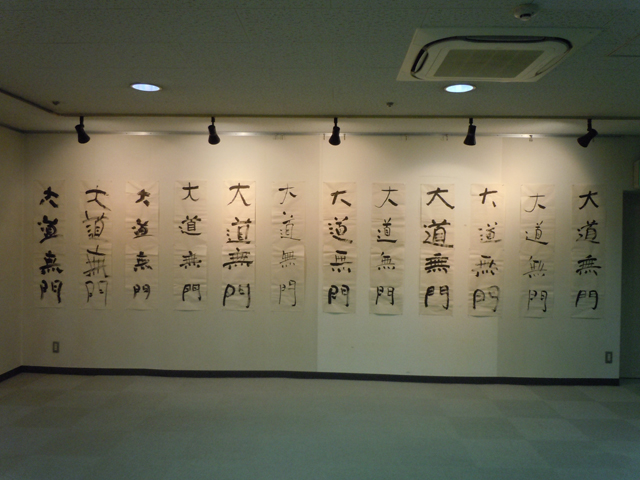 大道無門
大道無門
大道無門
大道無門
大道無門
大道無門
大道無門
大道無門
大道無門
大道無門
大道無門
大道無門